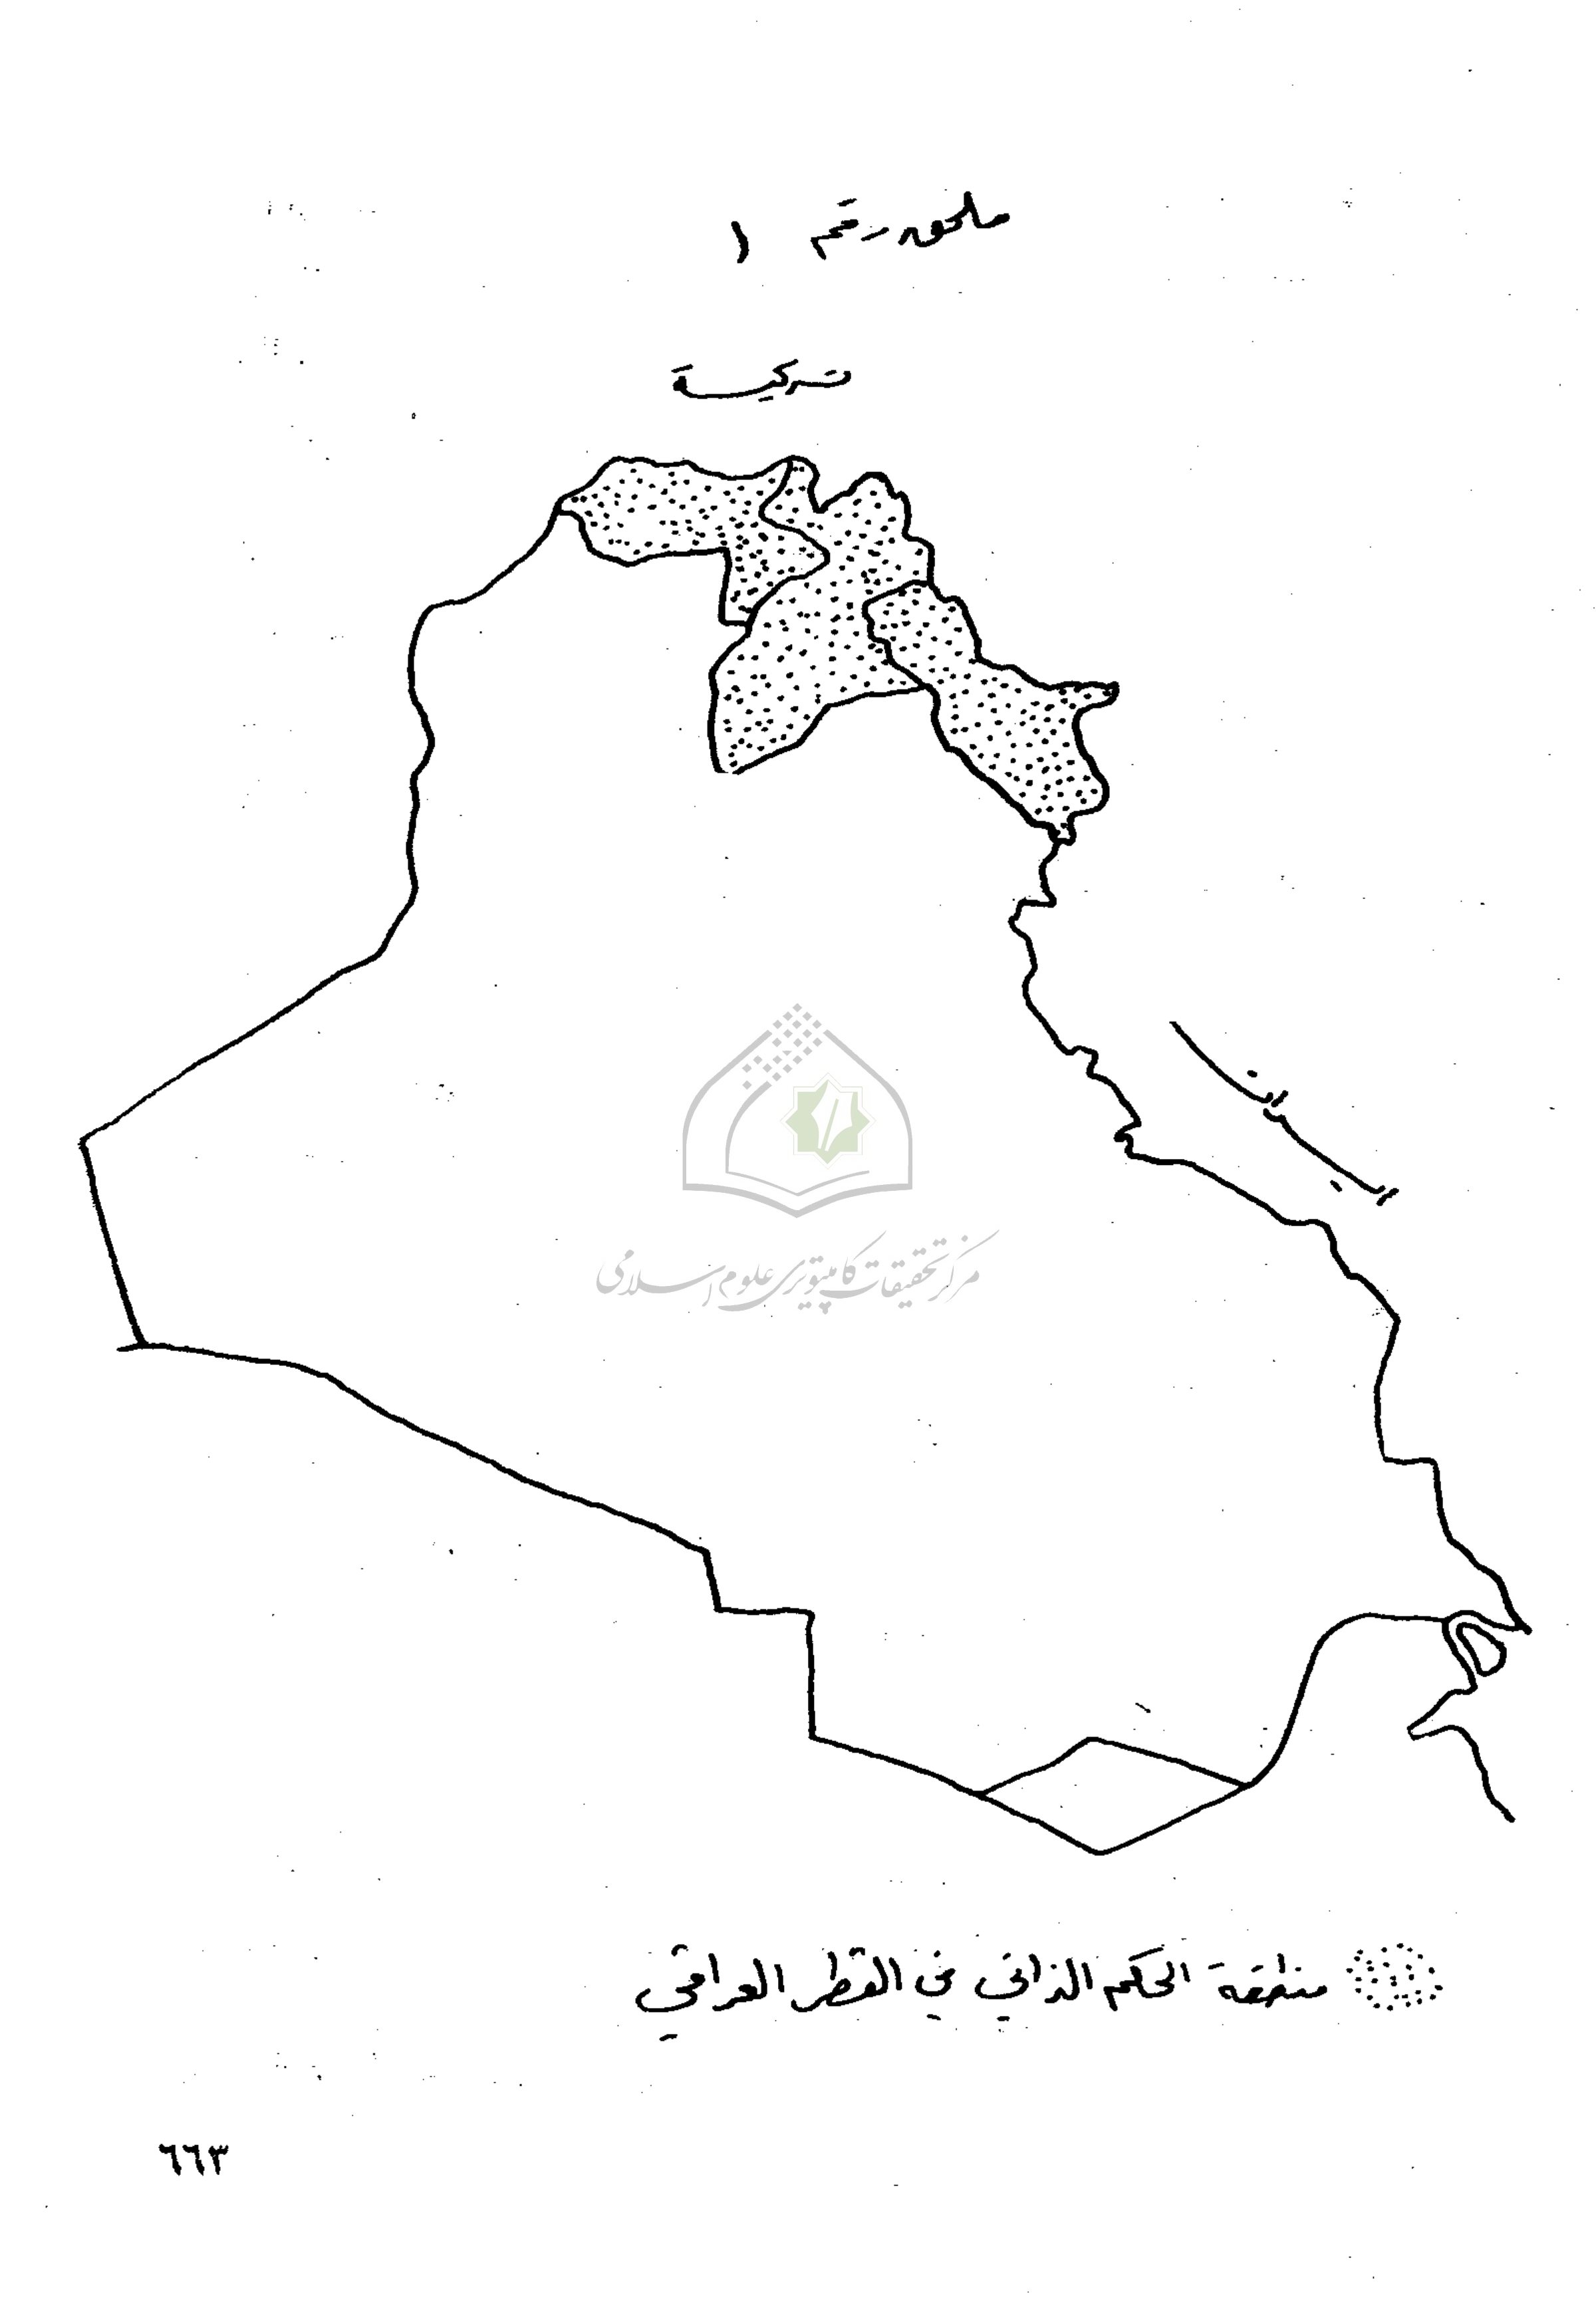 ملحق رقم ١
تركية
ايران
مركز تحقيقات كامپيوتری علوم اسلامی
منطقة الحكم الذاتي في القطر العراقي
٦٦٣